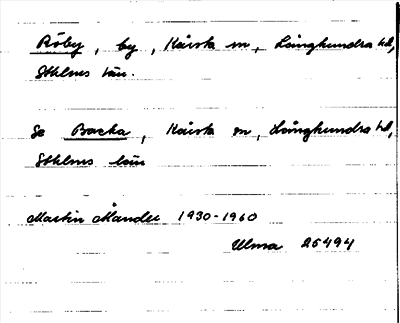 Röby, by, Kårsta sn, Långhundra hd,
Sthlms län.
Se Backa, Kårsta sn, Långhundra hd,
Sthlms län
Martin Åander 1930-1960
Ulma 25494